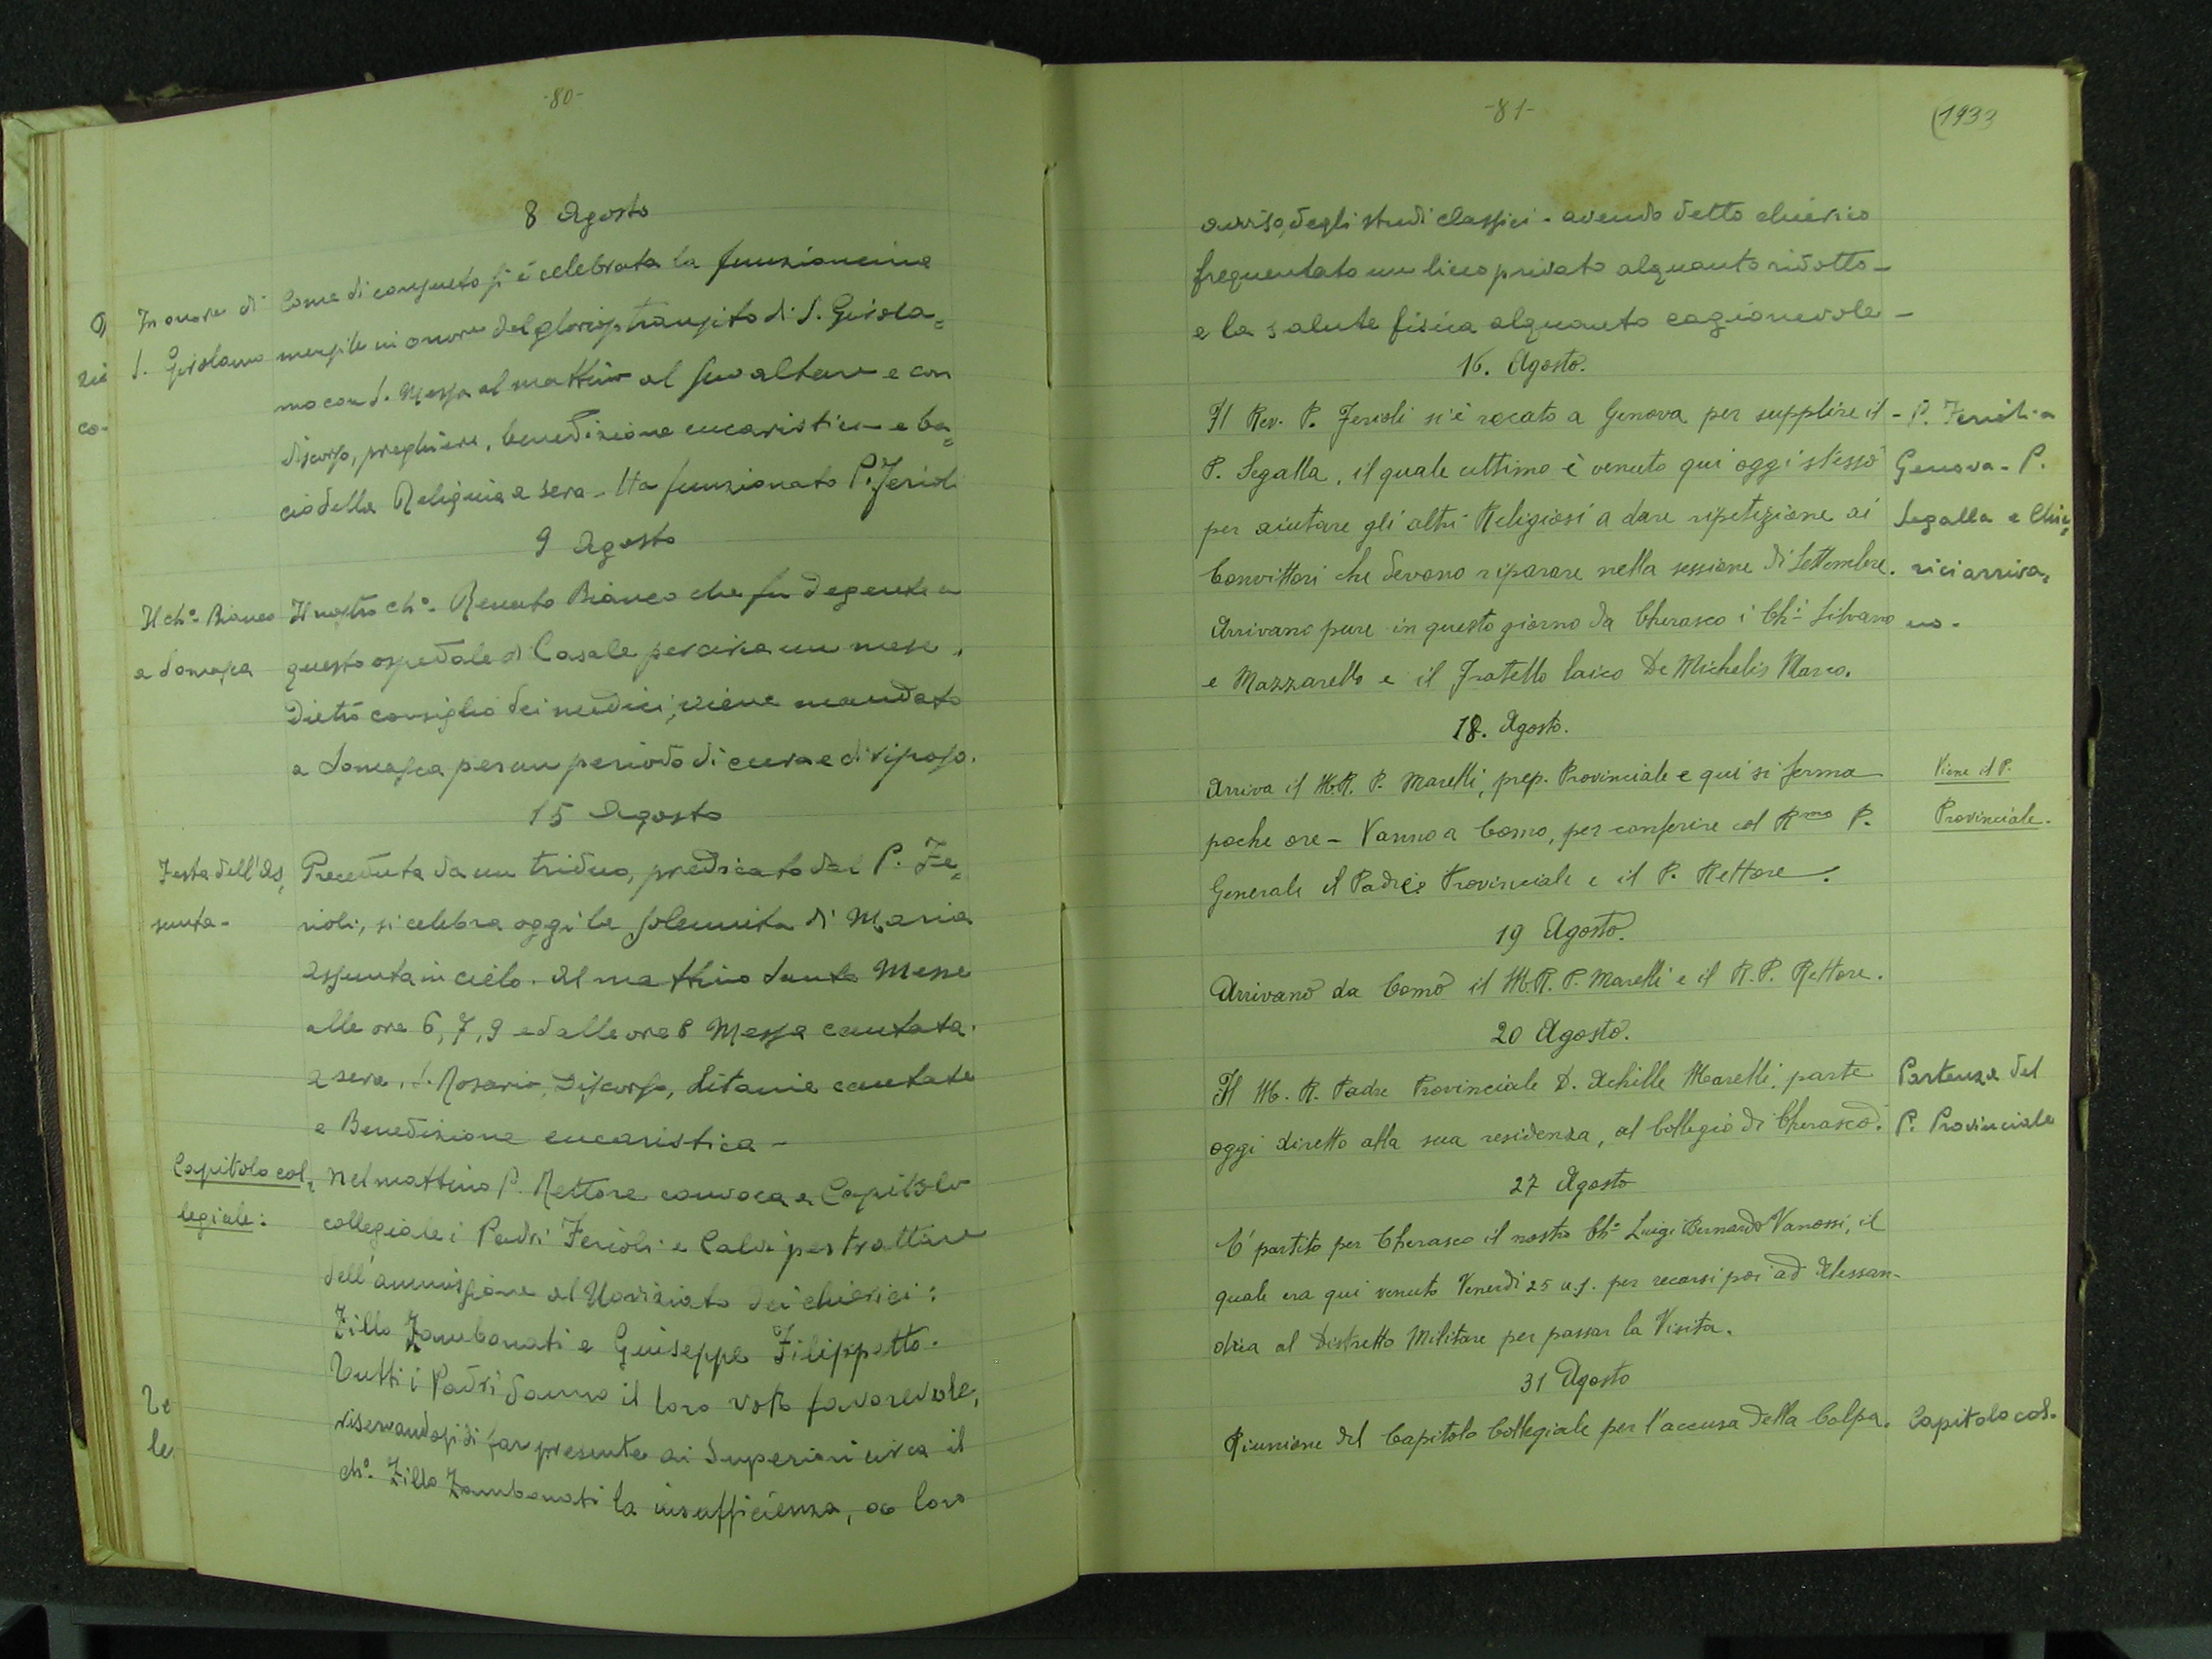 -80-
8 Agosto
In onore di
S. Girolamo
Come di consueto si è celebrata la funzioncina
mensile in onore del glorioso transito di S. Girola=
mo con S. Messa al mattino al suo altare e con
discorso, preghiere, benedizione eucaristica e ba=
cio della Reliquia a sera - Ha funzionato P. Ferioli
9 Agosto
Il ch.º Bianco
a Somasca
Il nostro ch.º Renato Bianco che fu degente in
questo ospedale di Casale per circa un mese,
dietro consiglio dei medici, viene mandato
a Somasca per un periodo di cura e di riposo.
15 Agosto
Festa dell'As=
sunta-
Preceduta da un triduo, predicato dal P. Fe=
rioli, si celebra oggi la solennità di Maria
Assunta in cielo. Al mattino Sante Messe
alle ore 6, 7, 9 ed alle ore 8 Messa cantata.
a sera, S. Rosario, Discorso, Litanie cantate
e Benedizione eucaristica -
Capitolo col=
legiale:
Nel mattino P. Rettore convoca a Capitolo
collegiale i Padri Ferioli e Calvi per trattare
dell'ammissione al Noviziato dei chierici:
Zillo Zambonati e Giuseppe Filippetto.
Tutti i Padri danno il loro voto favorevole,
riservandosi di far presente ai Superiori circa il
ch.º Zillo Zambonati la insufficienza, a loro
-81-
(1933
avviso, degli studi classici - avendo detto chierico
frequentato un liceo privato alquanto ridotto -
e la salute fisica alquanto cagionevole -
16. Agosto.
Il Rev. P. Ferioli si è recato a Genova per supplire il
P. Segalla, il quale ultimo è venuto qui oggi stesso
per aiutare gli altri Religiosi a dare ripetizione ai
Convittori che devono riparare nella sessione di Settembre.
Arrivano pure in questo giorno da Cherasco i Ch.i Silvano
e Mazzarello e il Fratello laico De Michelis Marco.
- P. Ferioli a
Genova - P.
Segalla e Chie=
rici arriva=
no -
18. Agosto.
Arriva il M.R. P. Marelli, prep. Provinciale e qui si ferma
poche ore - Vanno a Como, per conferire col Rmo P.
Generale il Padre Provinciale e il P. Rettore.
Viene il P.
Provinciale.
19 Agosto.
Arrivano da Como il M.R. P. Marelli e il R.P. Rettore.
20 Agosto.
Il M. R. Padre Provinciale D. Achille Marelli, parte
oggi diretto alla sua residenza, al Collegio di Cherasco.
Partenza del
P. Provinciale
27 Agosto
E' partito per Cherasco il nostro Ch.º Luigi Bernardo Vanossi, il
quale era qui venuto Venerdì 25 u.s. per recarsi poi ad Alessan-
dria al Distretto Militare per passar la Visita.
31 Agosto
Riunione del Capitolo Collegiale per l'accusa della Colpa.
Capitolo col.